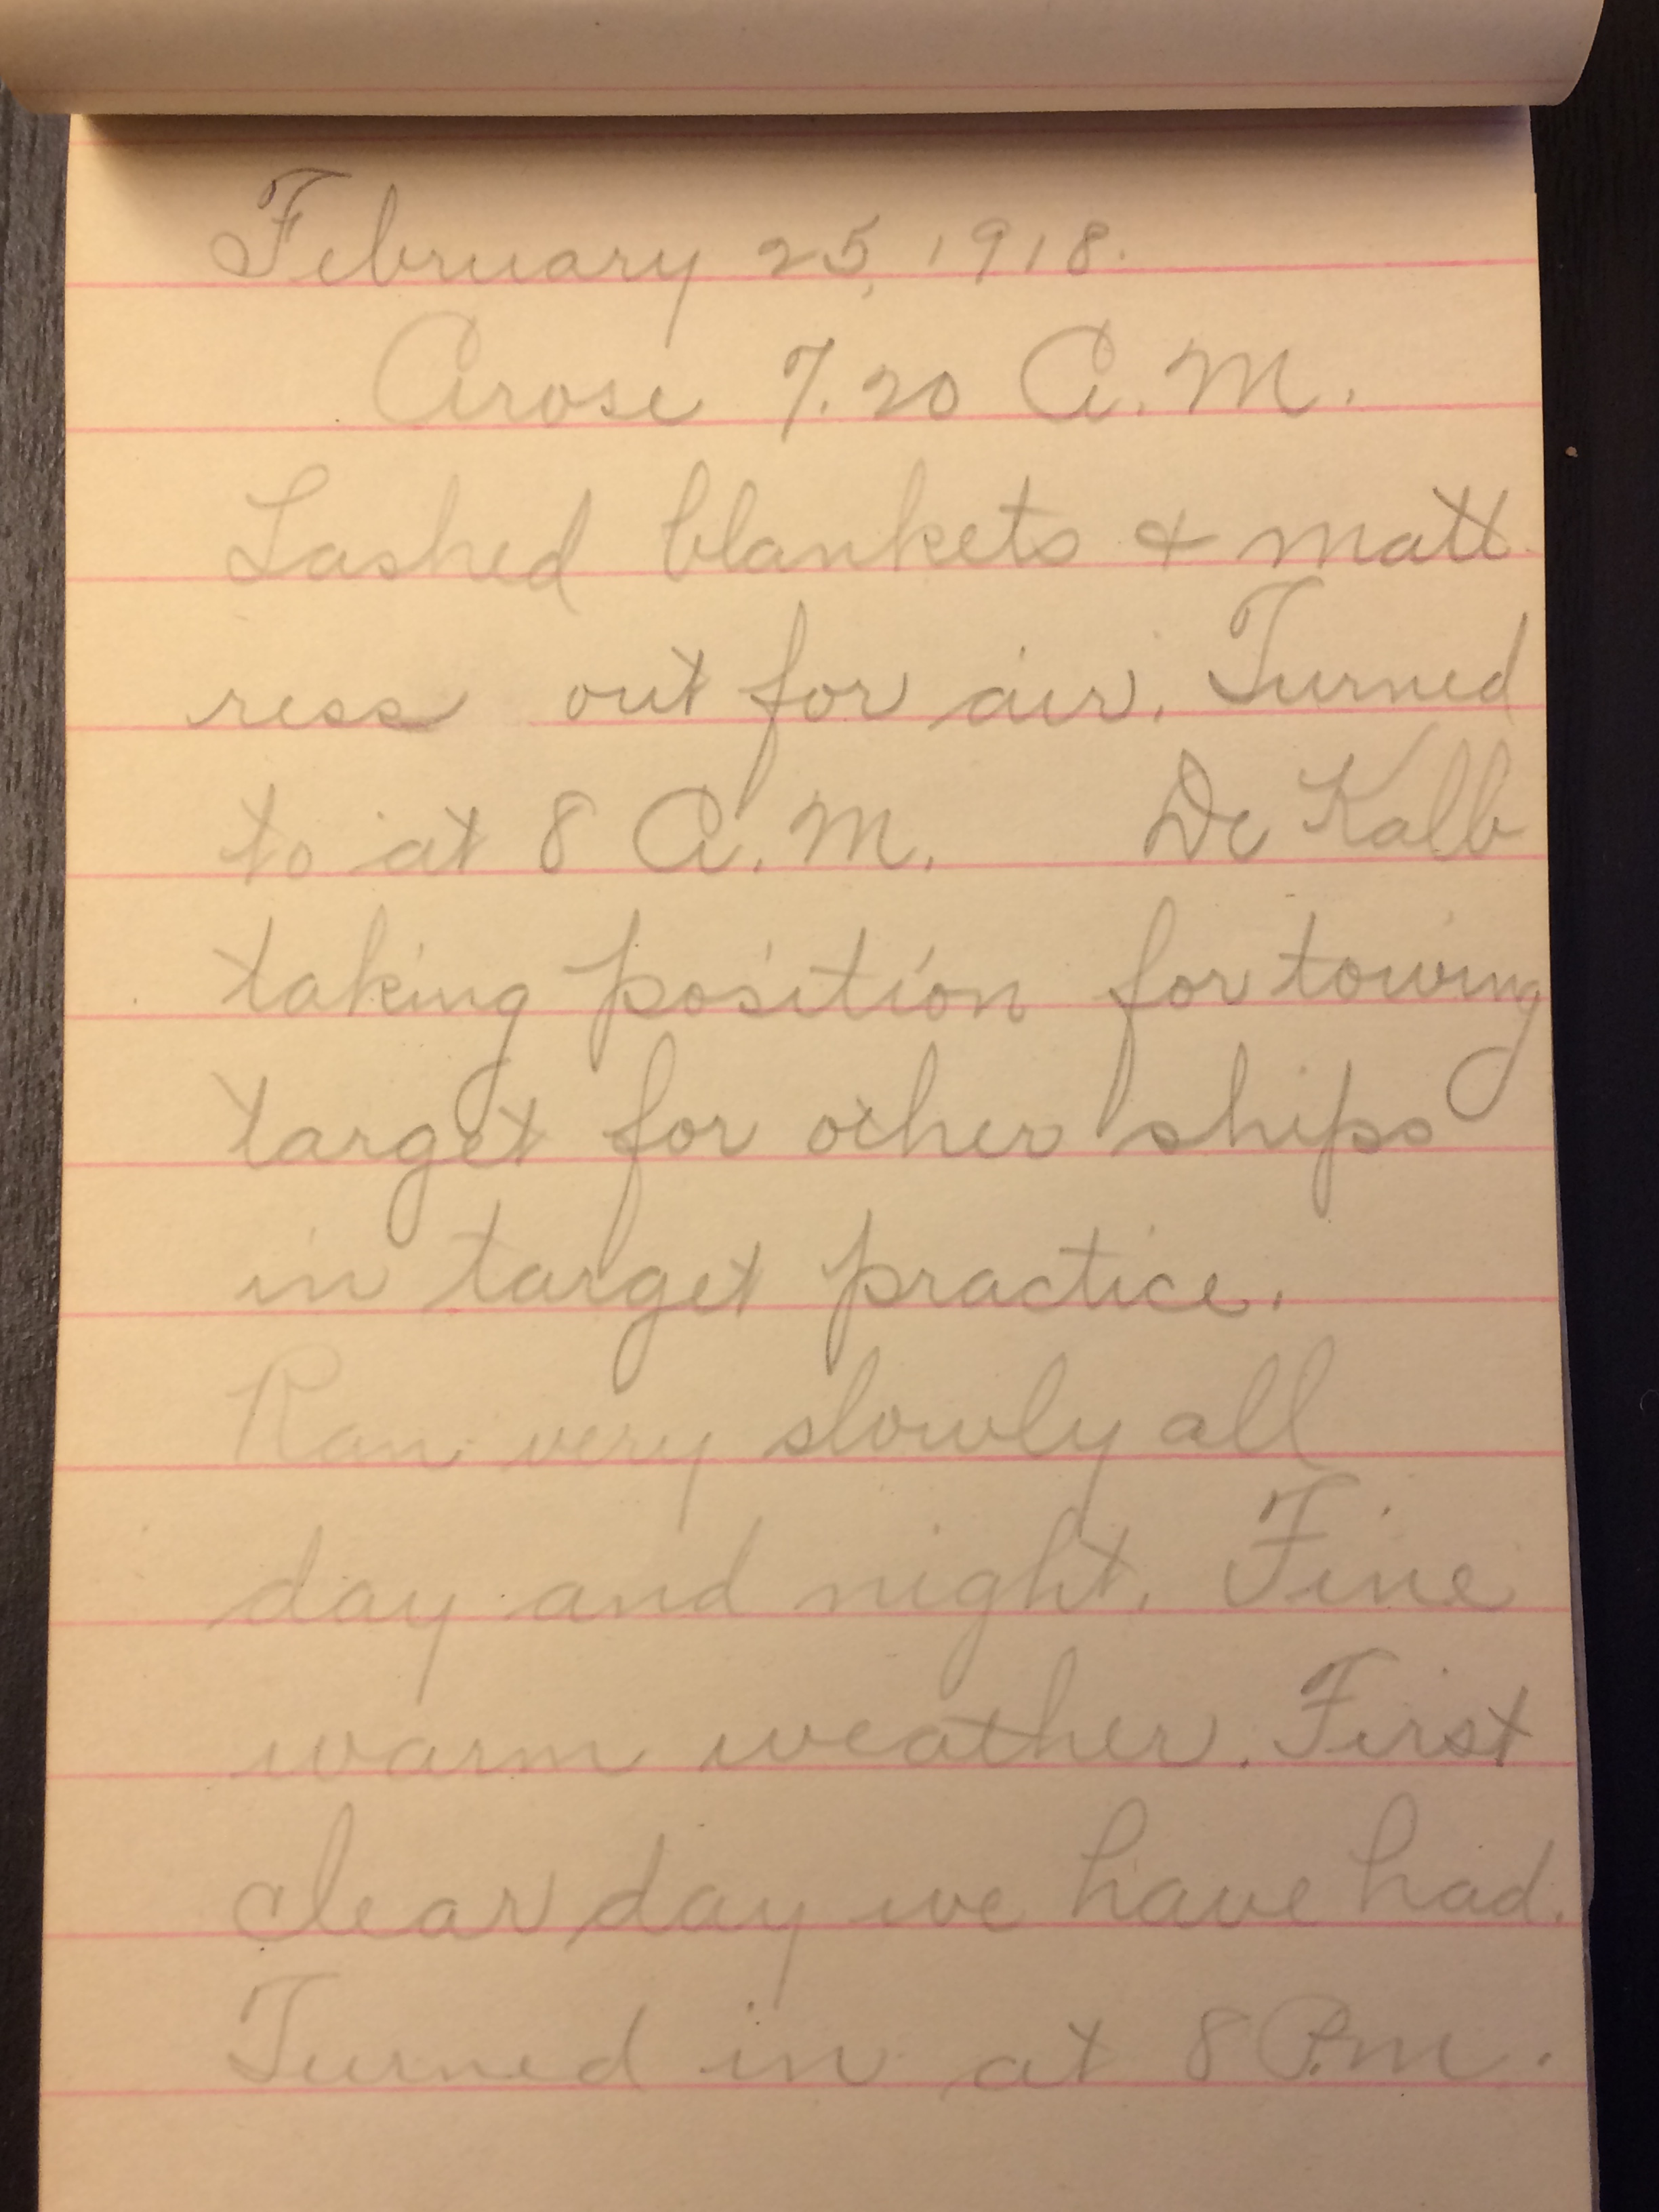 February 25, 1918.
Arose 7.20 A.M.
Lashed blankets & matt
ress out for air. Turned
to at 8 A.M. De Kalb
taking position for towing
target for other ships
in target practice.
Ran very slowly all
day and night. Fine
warm weather. First
clear day we have had.
Turned in at 8 P.m.